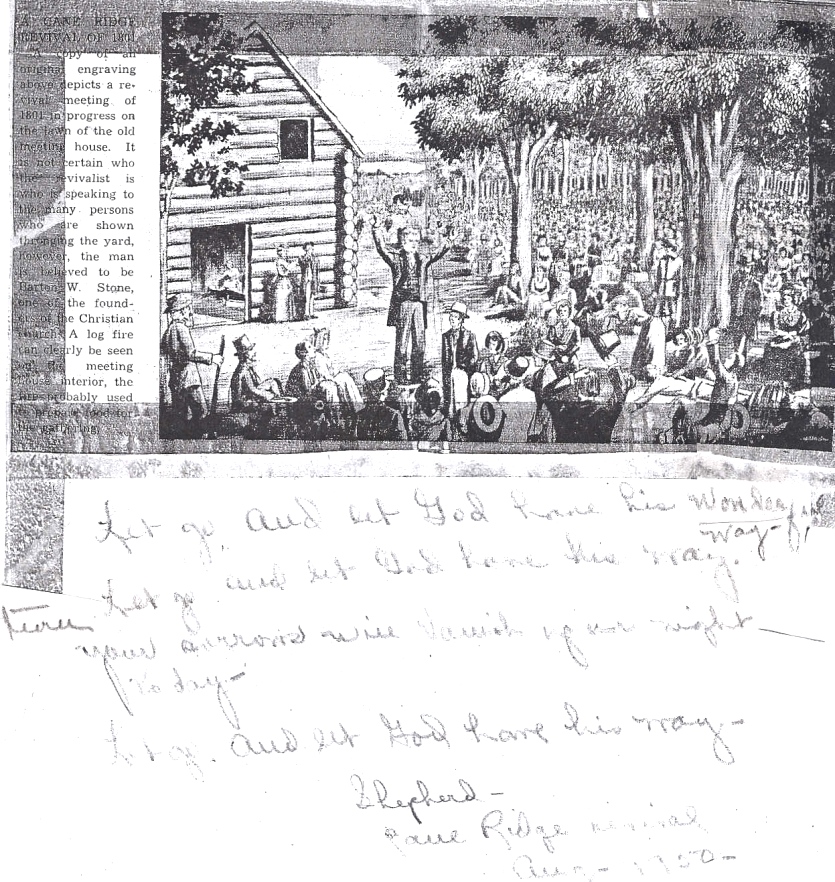 A CANE RIDGE
REVIVAL OF 1801
A copy of an
original engraving
above depicts a re-
vival meeting of
1801 in progress on
the lawn of the old
meeting house. It
is not certain who
the revivalist is
who is speaking to
the many persons
who are shown
thronging the yard,
however, the man
is believed to be
Barton W. Stone,
one of the found-
ers of the Christian
Church. A log fire
can clearly be seen
the meeting
house interior, the
fire probably used
to prepare food for
the gathering.
Let go, and let God have his Wonderful
way-
Let go and let God have his way.
your sorrows will vanish your night
today-
Let go. and let God have his way-
Shepherd-
Cane Ridge revival
Aug- 1950-